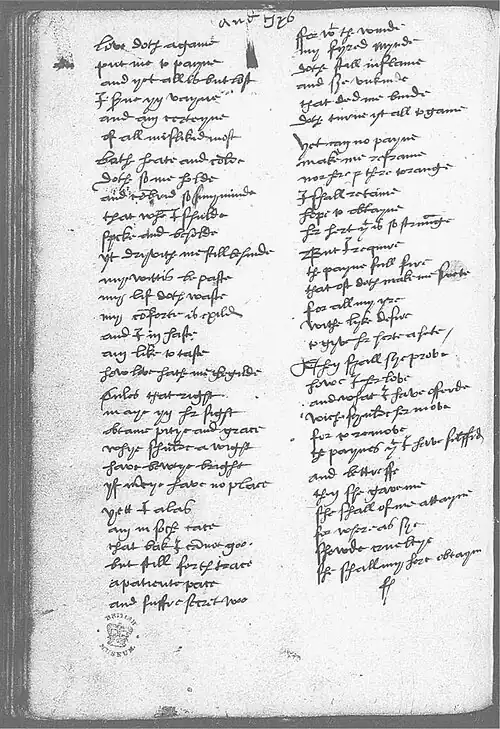 and thys
love doth agane
put me to payne
and yet all is but lost
I serve yn vayne
and am certeyne
of all mislikid most
bath heate and colde
doth so me holde
and so my minde
that whē I shulde
speke and beholde
yt drivith me still behinde
my wittis be paste
my lif doth waste
my cōforte is exild
and I in haste
am like to taste
how love hath me begilde
onles that right
may yn her sight
obtaine pitye and grace
whye shulde a wight
have bewtye bright
yf mercye have no place
yet I alas
am in soche cace
that bak I cānot goo
but still forth trace
a patiente pace
and suffre secret woo
BRITISH MUSEUM
ffor wt the winde
my fyred mynde
doth still inflame
and she unkinde
that ded me binde
doth turne yt all to game
yet can no payne
make me refrayne
nor here & there to range
I shall retaine
hope to obtayne
her hert yt is so straunge
But I require
the payne full fire
that oft doth make me swete
for all my yre
with lyke desire
to give her herte a hete
Then shall she prove
how I her love
and what I have offerde
wich shulde her move
for to remove
the paynes yt I have suffrd
and bettre ffe
then she gave me
she shall of me attayne
for wheras she
showde crueltye
she shall my hert obtayn